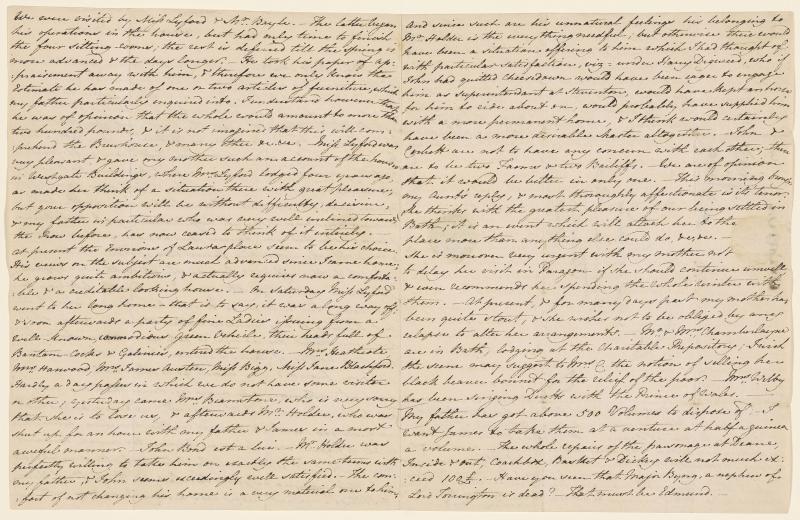 We were visited by Miss Lyford & Mr. Bayle. – The latter began
his operations in the house, but had only time to finish
the four sitting-rooms, the rest is deferred till the spring is
more advanced & the days longer. – He took his paper of ap-
praisement away with him, & therefore we only know the
Estimate he has made of one or two articles of furniture, which
my father particularly enquired into. I understand however that
he was of opinion that the whole would amount to more than
two hundred pounds, & it is not imagined that this will com-
prehend the Brewhouse, & many other &c. &c. – Miss Lyford was
very pleasant & gave my mother such an account of the houses
in Westgate Buildings, where Mrs. Lyford lodged four years ago,
as made her think of a situation there with great pleasure;
but your opposition will be without difficulty, decisive,
& my father in particular who was very well inclined towards
the Row before, has now ceased to think of it entirely. –
At present the Environs of Laura-place seem to be his choice.
His views on the subject are much advanced since I came home;
he grows quite ambitious, & actually requires now a comforta-
ble & a creditable looking house. – On Saturday Miss Lyford
went to her long home – that is to say, it was a long way off;
& soon afterwards a party of fine Ladies issuing from a
well-known, commodious Green Vehicle, their heads full of
Bantam-Cocks & Galinies, entered the house. – Mrs. Heathcote,
Mrs. Harwood, Mrs. James Austen, Miss Bigg, Miss Jane Blachford.
Hardly a day passes in which we do not have some visitor
or other; yesterday came Mrs. Bramstone, who is very sorry
that she is to lose us, & afterwards Mr. Holder, who was
shut up for an hour with my father & James in a most
aweful manner. – John Bond est a lui. – Mr. Holder was
perfectly willing to take him on exactly the same terms with
my father, & John seems exceedingly well satisfied. – The com-
-fort of not changing his home is a very material one to him,
And since such are his unnatural feelings his belonging to
Mr. Holder is the every thing needful; but otherwise there would
have been a situation offering to him which I had thought of
with particular satisfaction, viz: – under Harry Digweed, who if
John had quitted Cheesedown would have been eager to engage
him as Superintendant at Steventon, would have kept an horse
for him to ride about on, would probably have supplied him
with a more permanent home, & I think would certainly
have been a more desirable Master altogether. – John &
Corbett are not to have any concern with each other; there
are to be two Farms & two Bailiffs. – We are of opinion
that it would be better in only one. – This morning brought
my Aunt's reply, & most thoroughly affectionate is its tenor.
She thinks with the greatest pleasure of our being settled in
Bath; it is an event which will attach her to the
place more than anything else could do, &c. &c. –
She is moreover very urgent with my mother not
to delay her visit in Paragon if she should continue unwell,
& even recommends her spending the whole winter with
them. – At present, & for many days past my mother has
been quite stout, & she wishes not to be obliged by any
relapse to alter her arrangements. – Mr. & Mrs. Chamberlayne
are in Bath, lodging at the Charitable Repository; I wish
the scene may suggest to Mrs. C. the notion of selling her
black beaver bonnet for the relief of the poor. – Mrs. Welby
has been singing Duetts with the Prince of Wales. –
My father has got above 500 Volumes to dispose of; – I
want James to take them at a venture at half a guinea
a volume. – The whole repairs of the parsonage at Deane,
Inside & out, Coachbox, Basket & Dickey will not much ex-
ceed 100£. – Have you seen that Major Byng, a nephew of
Lord Torrington is dead? – That must be Edmund. –